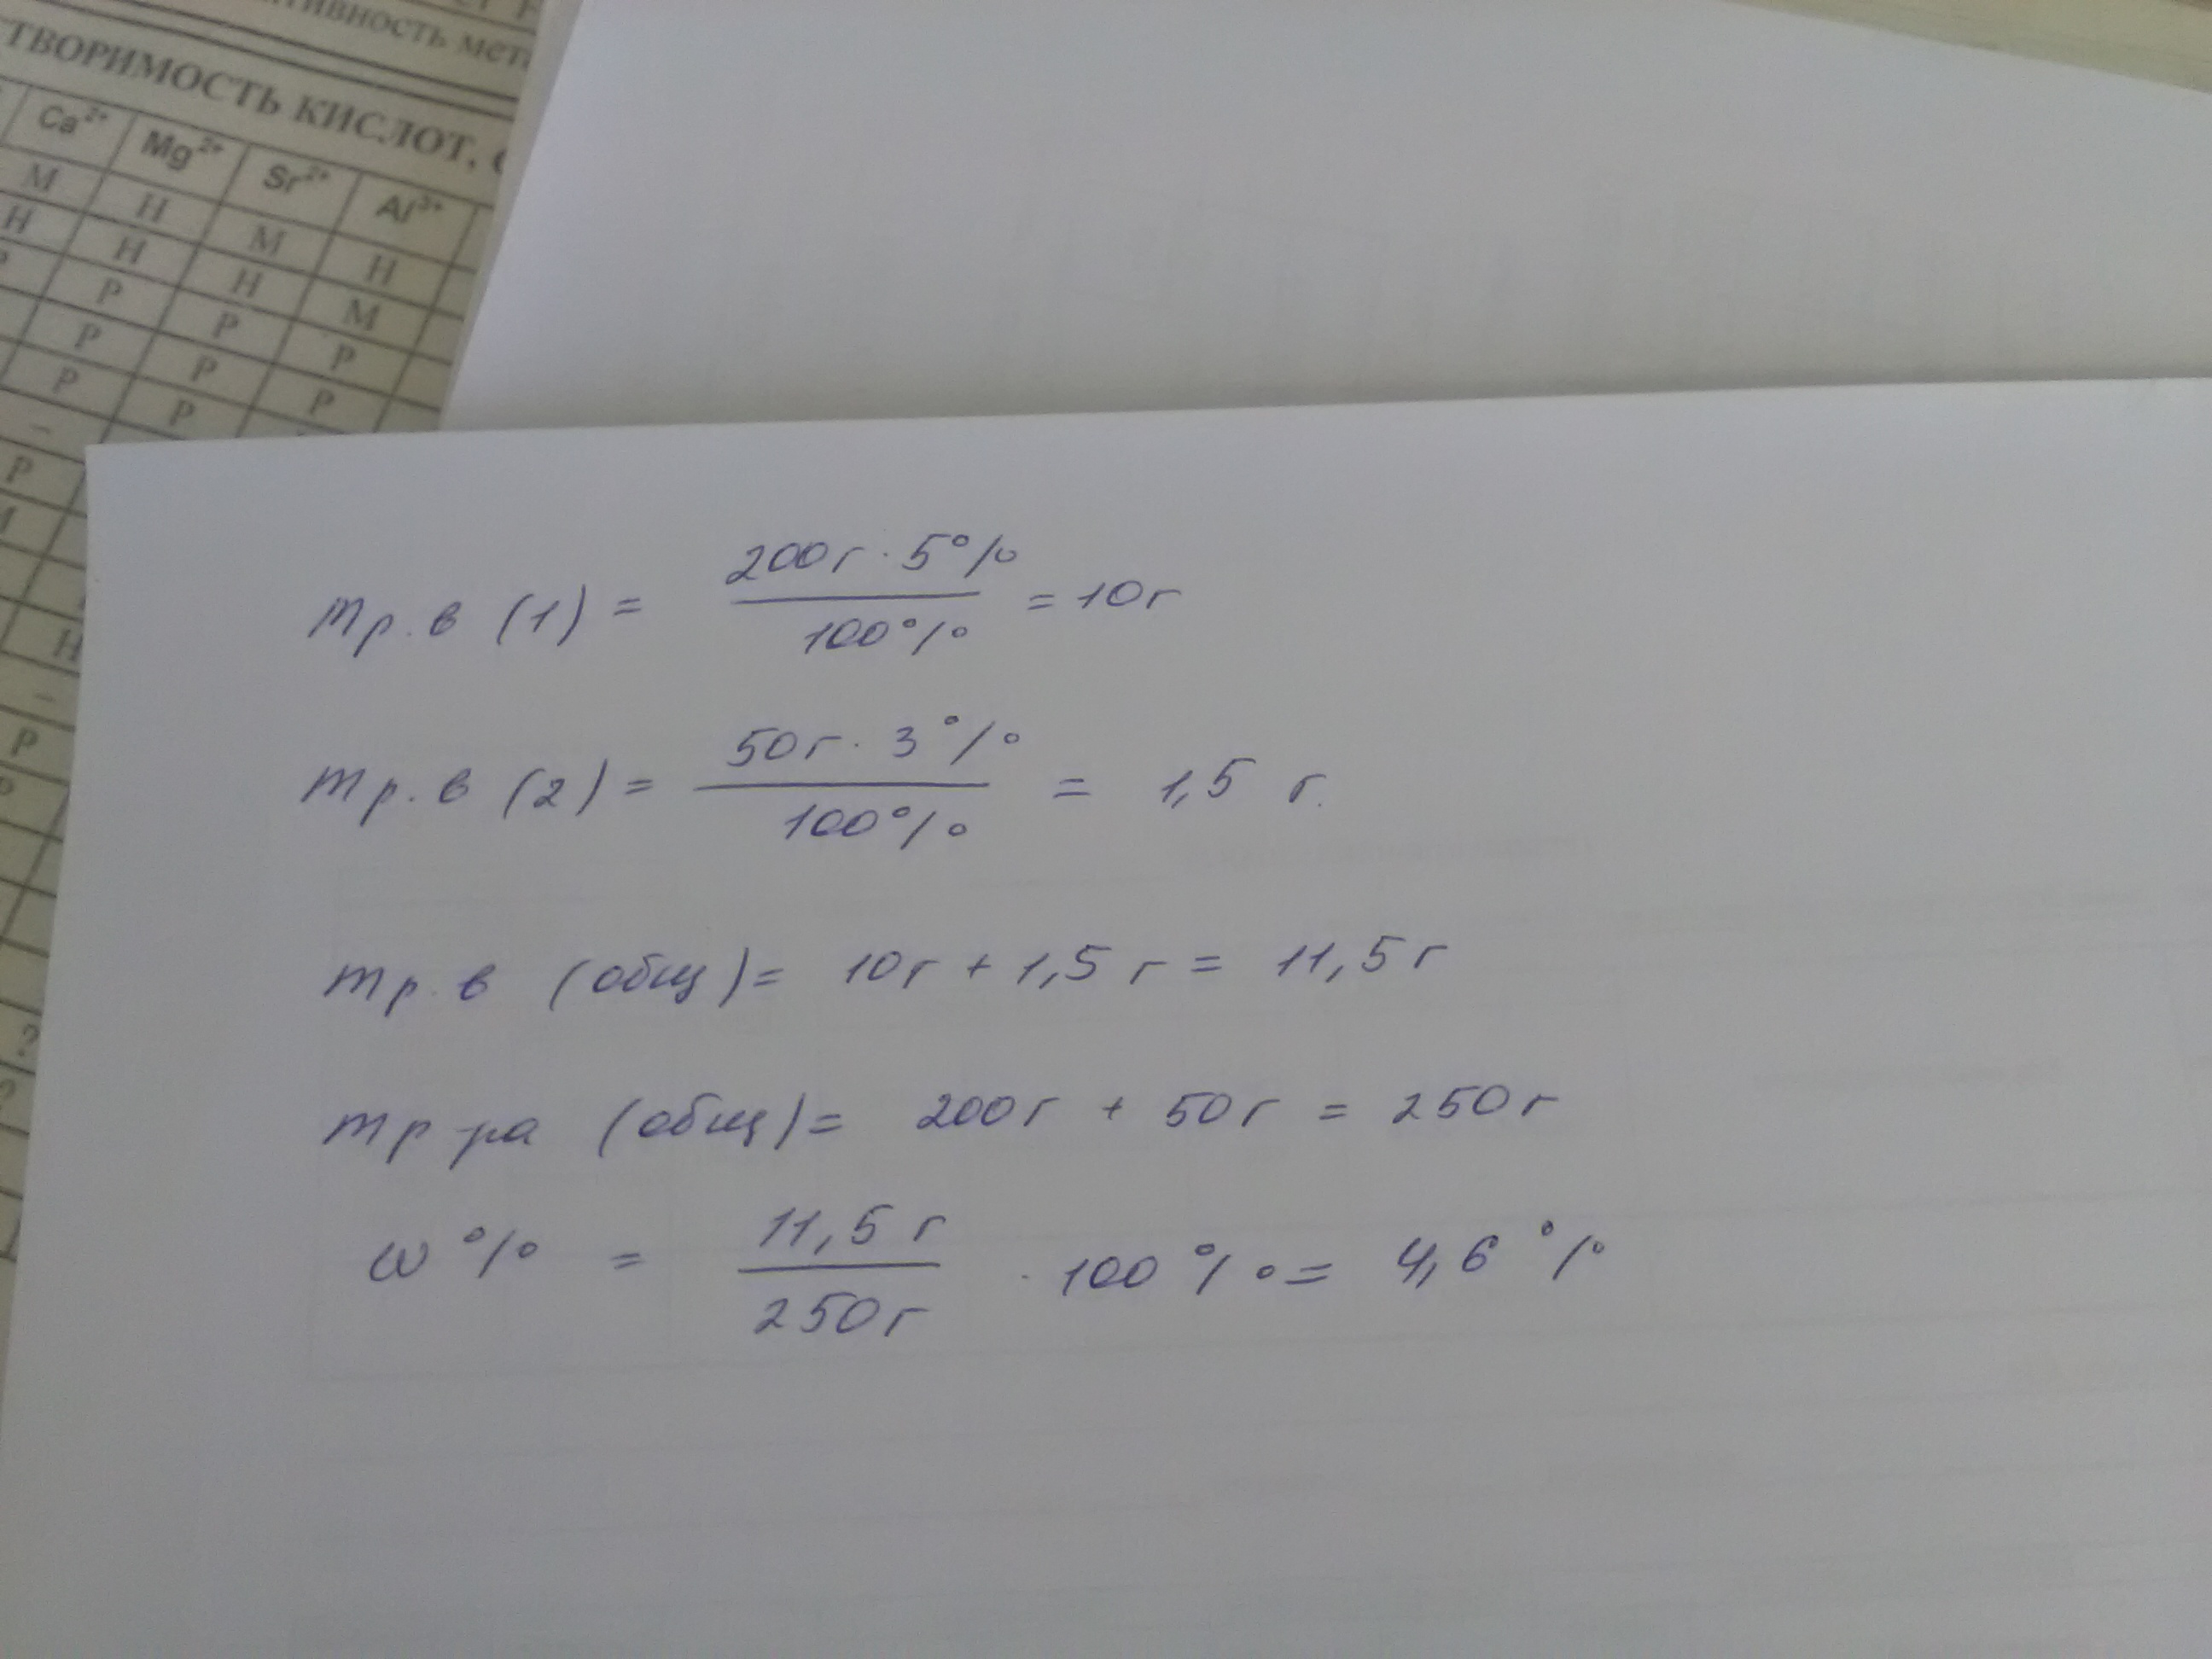 ТВОРИМОСТЬ КИСЛОТ,
Ca²⁺ Mg²⁺ Sr²⁺ Al³⁺
М Н М Н
Н Н Н М
Р Р Р Р
Р Р Р
Р Р
–
Р
Н
–
Р
?
?
mр.в (1) = 200г · 5% / 100% = 10г
mр.в (2) = 50г · 3% / 100% = 1,5 г.
mр.в (общ) = 10г + 1,5 г = 11,5г
mр-ра (общ) = 200г + 50г = 250г
ω % = 11,5 г / 250г · 100 % = 4,6 %